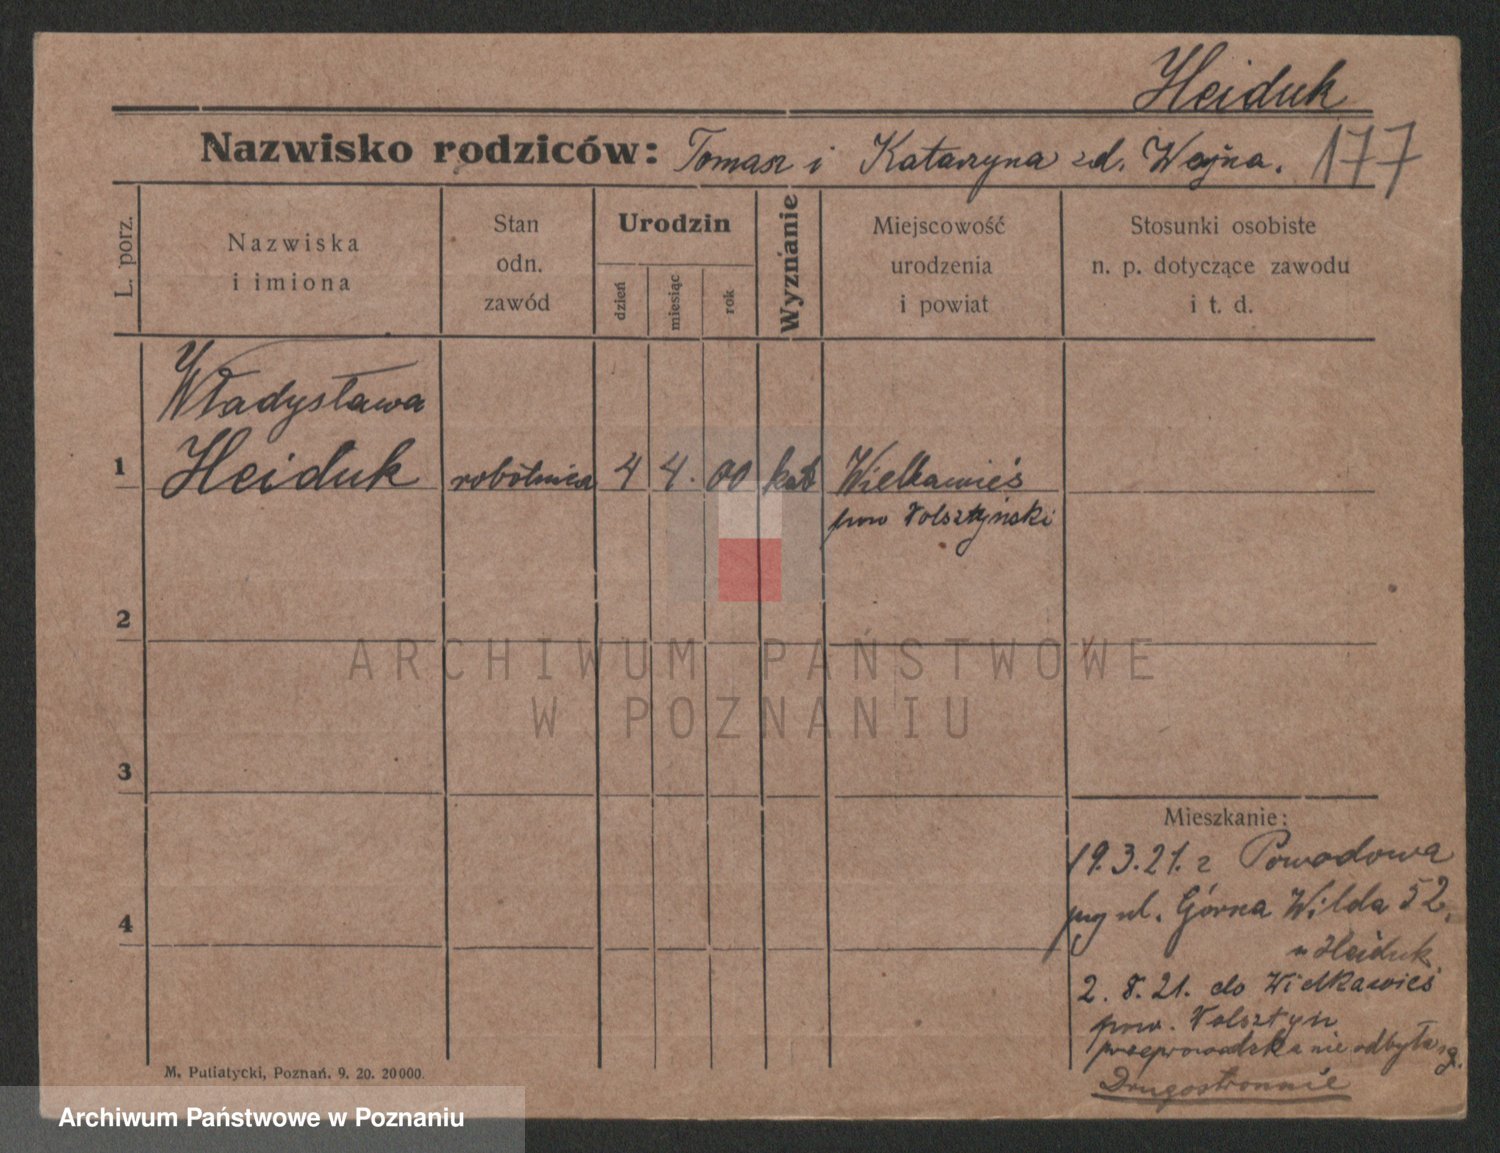 Heiduk
Nazwisko rodziców: Tomasz i Katarzyna zd. Wojna. 177
L. porz.
Nazwiska
i imiona
Stan
odn.
zawód
Urodzin
dzień
miesiąc
rok
Wyznanie
Miejscowość
urodzenia
i powiat
Stosunki osobiste
n. p. dotyczące zawodu
i t. d.
Władysława
1 Heiduk robótnica 4 4. 00 kat Wielkawieś
pow Volsztyński
2
ARCHIWUM PAŃSTWOWE
W POZNANIU
3
Mieszkanie:
19.3.21. z Powodowa
ul. Górna Wilda 52.
u Heiduk
4
2. 8. 21. do Wielkawieś
pow. Volsztyn
przeprowadzka nie odbyła
Drugostronnie
M. Putiatycki, Poznań. 9. 20. 20000.
Archiwum Państwowe w Poznaniu